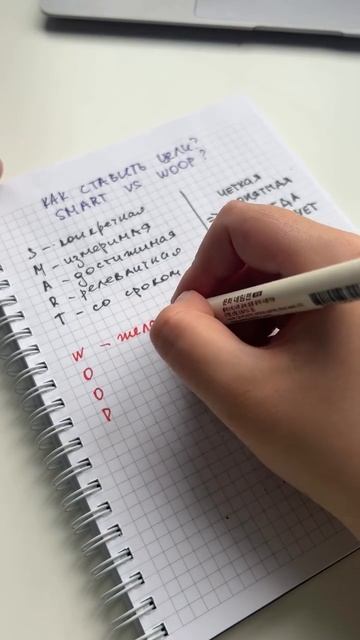 КАК СТАВИТЬ ЦЕЛИ?
SMART VS WOOP?
S - конкретная
M - измеримая
A - достижимая
R - релевантная
T - со сроком
четкая
W - жела
O
O
P